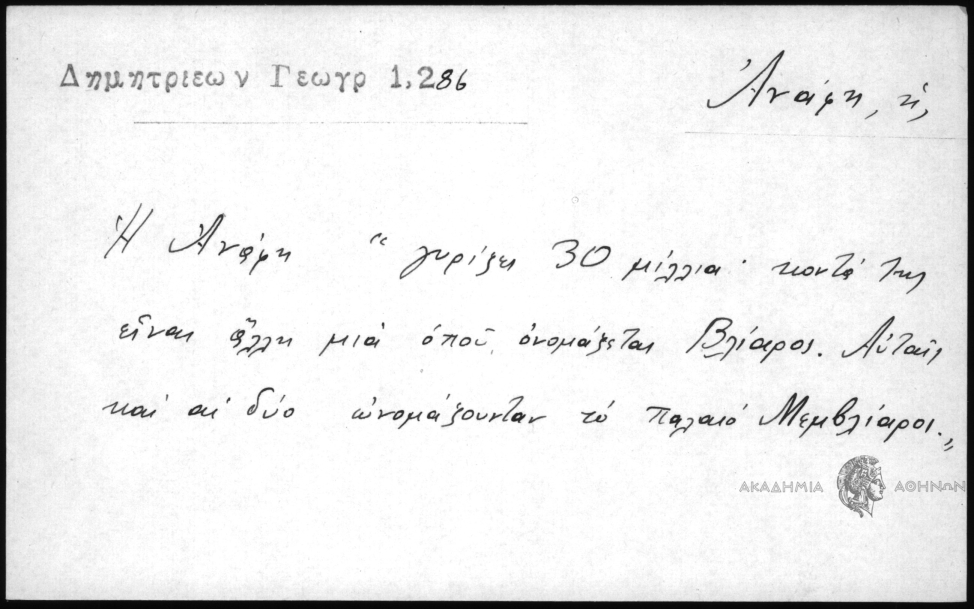 Δημητριεων Γεωγρ 1,286
Ἀνάφη, ἡ,
Ἡ Ἀνάφη “ γυρίζει 30 μίλλια· κοντά της
εἶναι ἄλλη μιά ὁποῦ ὀνομάζεται Βλίαρος. Αὐταῖς
καί αἱ δύο ὠνομάζουνταν τό παλαιό Μεμβλίαροι.„
ΑΚΑΔΗΜΙΑ ΑΘΗΝΩΝ